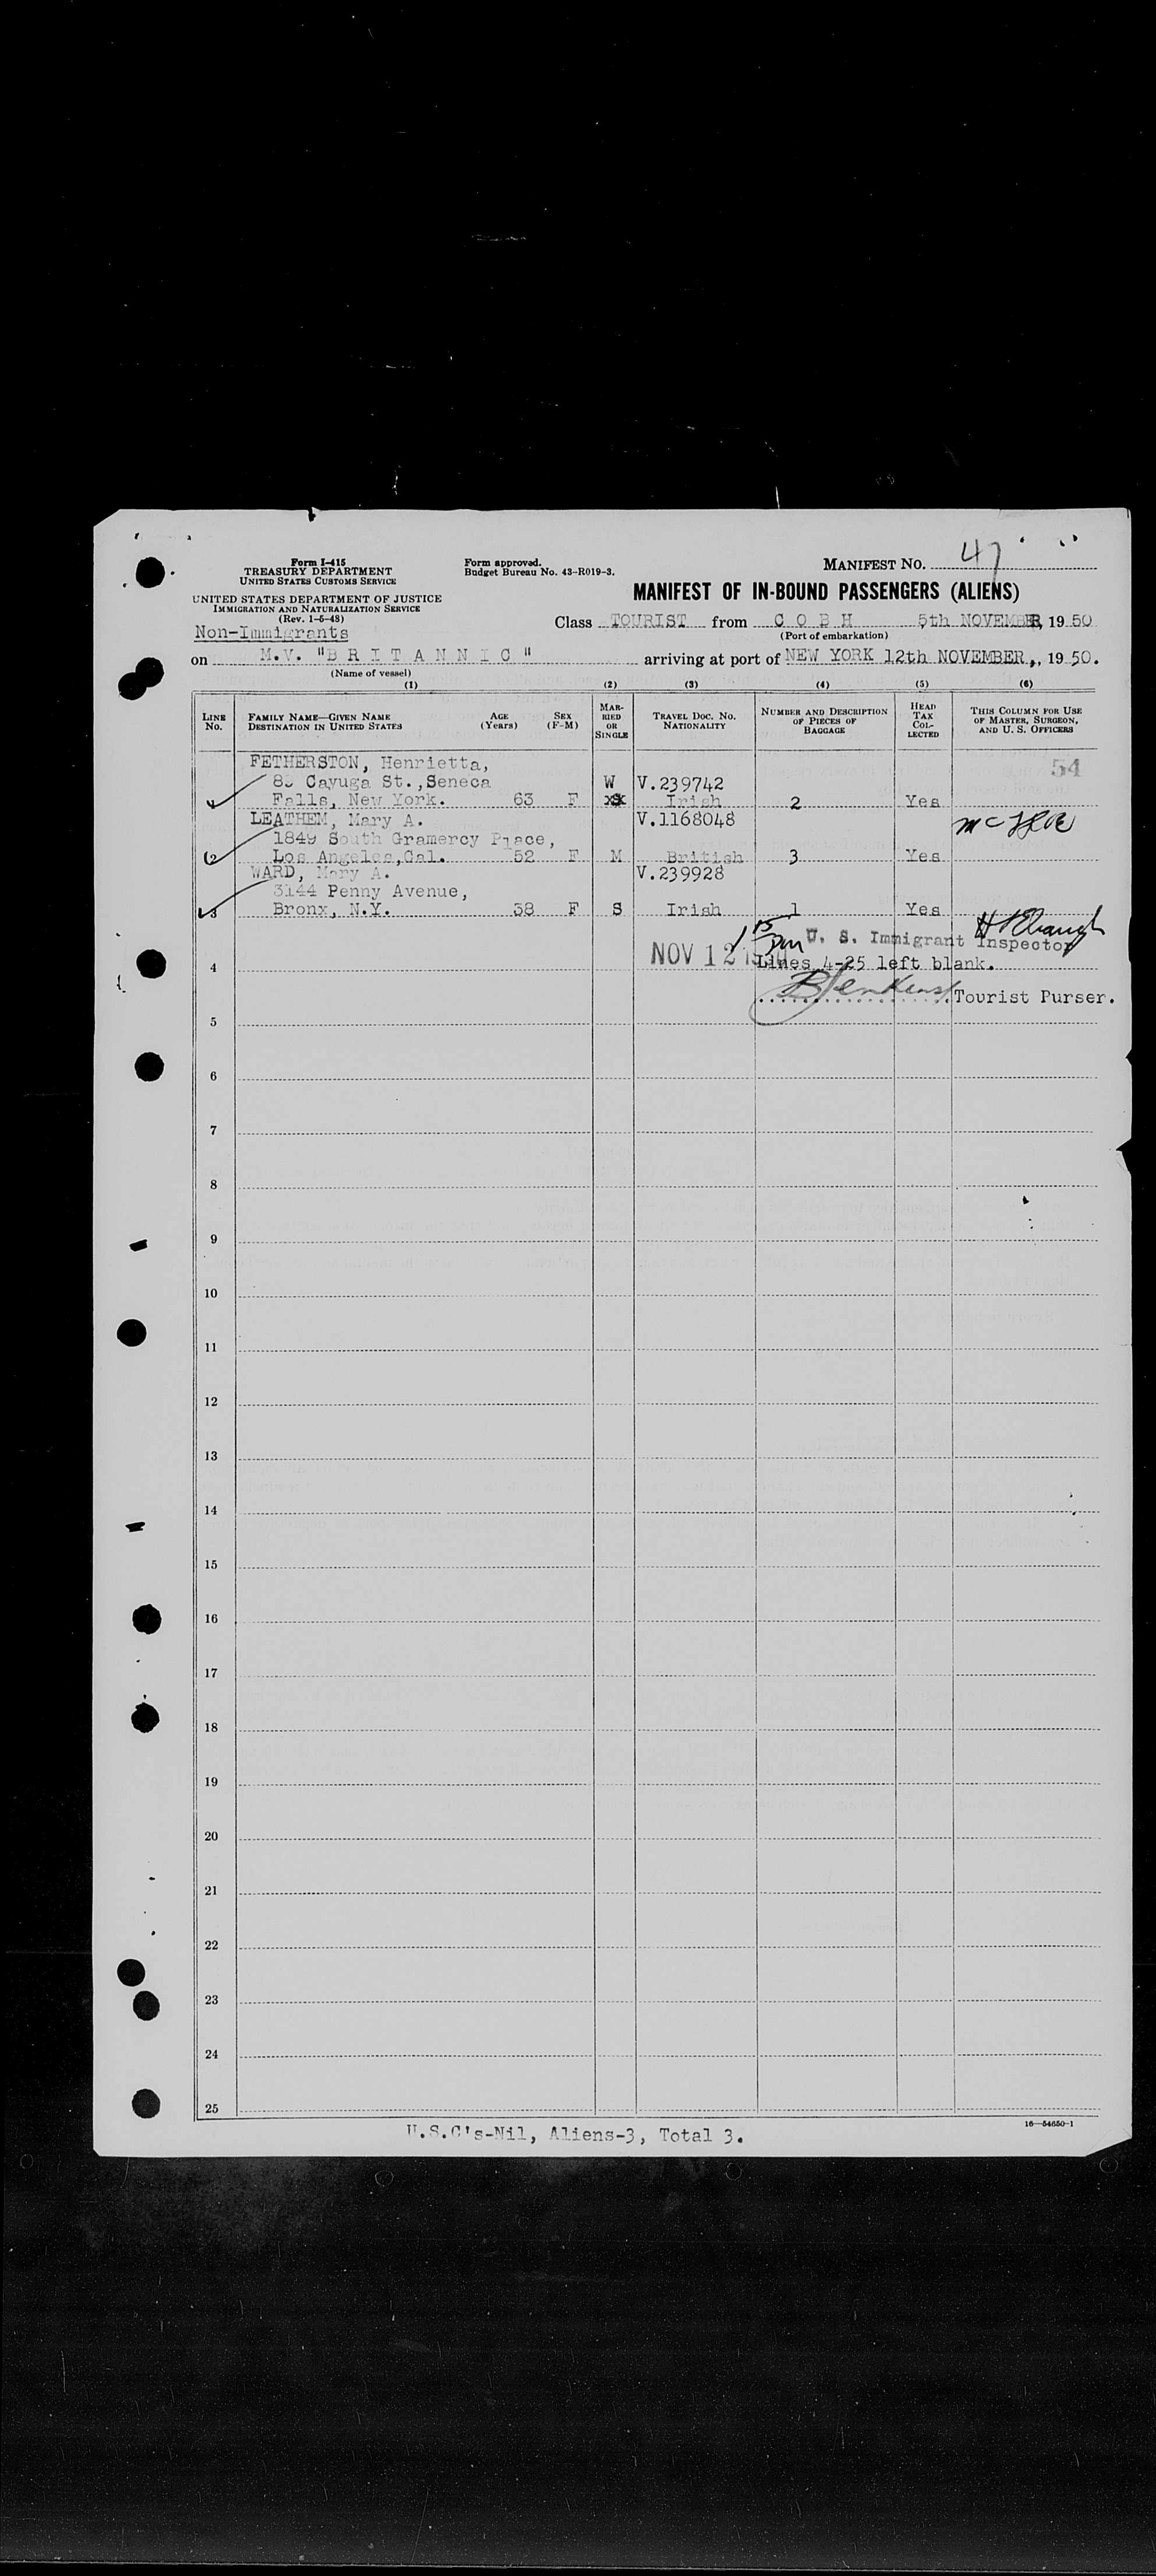 MANIFEST NO. 47
Form I-415
TREASURY DEPARTMENT
UNITED STATES CUSTOMS SERVICE
Form approved.
Budget Bureau No. 43-R019-3.
UNITED STATES DEPARTMENT OF JUSTICE
IMMIGRATION AND NATURALIZATION SERVICE
(Rev. 1-6-48)
Non-Immigrants
MANIFEST OF IN-BOUND PASSENGERS (ALIENS)
Class TOURIST from C O B H 5th NOVEMBER, 19 50
(Port of embarkation)
on M.V. "B R I T A N N I C" arriving at port of NEW YORK 12th NOVEMBER, 19 50.
(Name of vessel)
(1) (2) (3) (4) (5) (6)
LINE NO. FAMILY NAME—GIVEN NAME DESTINATION IN UNITED STATES AGE (Years) SEX (F-M) MARRIED OR SINGLE TRAVEL DOC. NO. NATIONALITY NUMBER AND DESCRIPTION OF PIECES OF BAGGAGE HEAD TAX COLLECTED THIS COLUMN FOR USE OF MASTER, SURGEON, AND U. S. OFFICERS
FETHERSTON, Henrietta, 54
Cayuga St., Seneca W V.239742
1 Falls, New York. 63 F Irish 2 Yes
LEATHEM, Mary A. V.1168048
1849 South Gramercy Place,
2 Los Angeles, Cal. 52 F M British 3 Yes
WARD, Mary A. V.239928
3144 Penny Avenue,
3 Bronx, N.Y. 38 F S Irish 1 Yes
U. S. Immigrant Inspector
NOV 12
4 Lines 4-25 left blank.
Tourist Purser.
5
6
7
8
9
10
11
12
13
14
15
16
17
18
19
20
21
22
23
24
25
16—54650-1
U.S.C's-Nil, Aliens-3, Total 3.